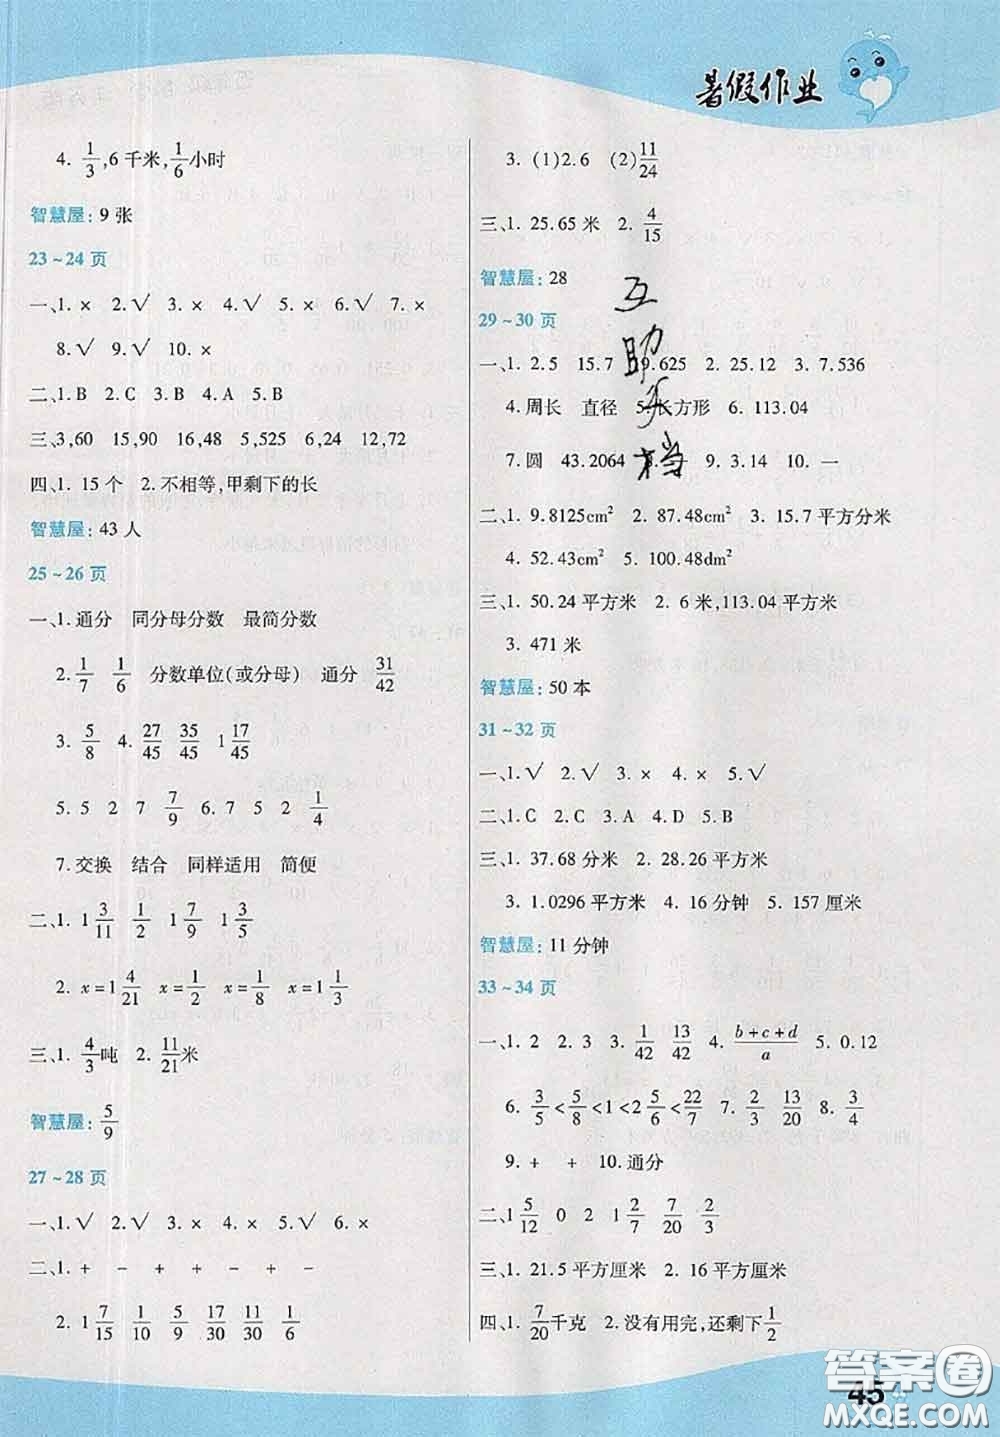 暑假作业
4. 1/3,6 千米,1/6小时
智慧屋: 9 张
23~24 页
一、1. × 2.√ 3. × 4.√ 5. × 6.√ 7. ×
8.√ 9.√ 10. ×
二、1. B 2. C 3. B 4. A 5. B
三、3,60 15,90 16,48 5,525 6,24 12,72
四、1. 15 个 2. 不相等,甲剩下的长
智慧屋: 43 人
25~26 页
一、1. 通分 同分母分数 最简分数
2. 1/7 1/6 分数单位(或分母) 通分 31/42
3. 5/8 4. 27/45 35/45 1 17/45
5. 5 2 7 7/9 6. 7 5 2 1/4
7. 交换 结合 同样适用 简便
二、1. 1 3/11 1/2 1 7/9 1 3/5
2. x=1 4/21 x=1/2 x=1/8 x=1 1/3
三、1. 4/3吨 2. 11/21米
智慧屋: 5/9
27~28 页
一、1.√ 2.√ 3. × 4. × 5.√ 6. ×
二、1. + − + − + −
2. 1 7/15 1/10 5/9 17/30 11/30
3. (1)2.6 (2)11/24
三、1. 25.65 米 2. 4/15
智慧屋: 28
29~30 页
一、1. 2.5 15.7 19.625 2. 25.12 3. 7.536
4. 周长 直径 5. 长方形 6. 113.04
7. 圆 43.2064 9. 3.14 10. 一
二、1. 9.8125cm² 2. 87.48cm² 3. 15.7 平方分米
4. 52.43cm² 5. 100.48dm²
三、1. 50.24 平方米 2. 6 米,113.04 平方米
3. 471 米
智慧屋: 50 本
31~32 页
一、1.√ 2.√ 3. × 4. × 5.√
二、1. C 2. C 3. A 4. D 5. B
三、1. 37.68 分米 2. 28.26 平方米
3. 1.0296 平方米 4. 16 分钟 5. 157 厘米
智慧屋: 11 分钟
33~34 页
一、1. 2 2. 3 3. 1/42 13/42 4. (b+c+d)/a 5. 0.12
6. 3/5<5/8<1<2 5/6<22/7 7. 7/20 13/20 8. 3/4
9. + + 10. 通分
二、1 5/12 0 2 1 2/7 7/20 2/3
三、1. 21.5 平方厘米 2. 16 平方厘米
四、1. 7/20千克 2. 没有用完,还剩下1/2
互
助
文
档
45
答案圈
MXQE.COM